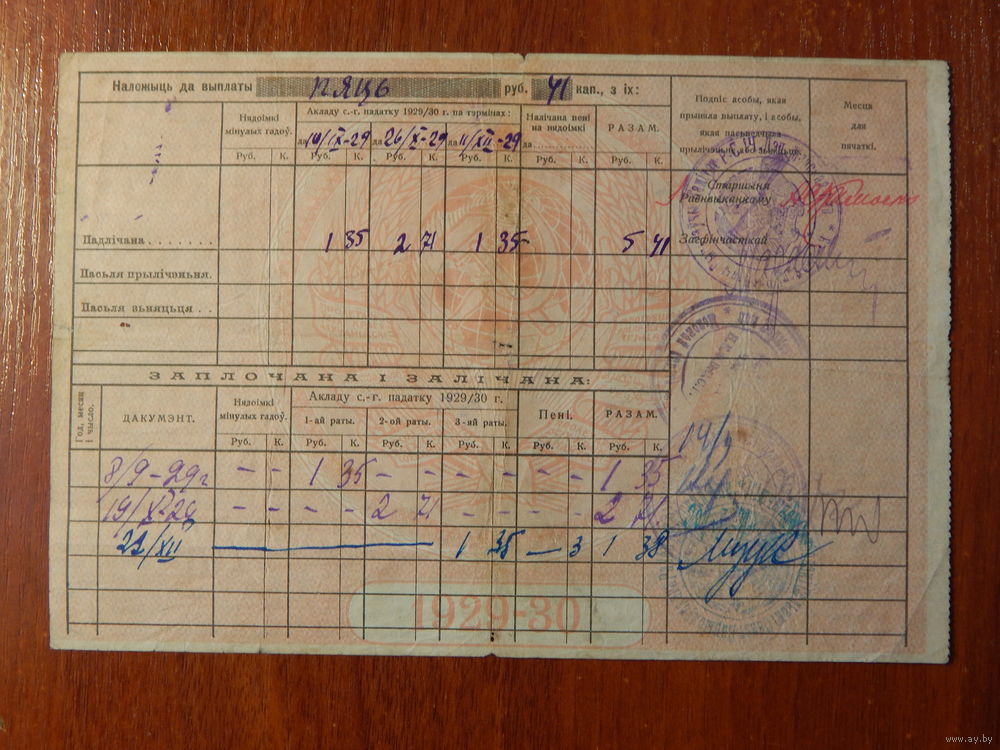 Наложыць да выплаты пяць руб. 41 кап., з іх:
Нядоімкі мінулых гадоў.
Руб. К.
Акладу с.-г. падатку 1929/30 г. па тэрмінах:
да 10/IX-29 да 26/X-29 да 11/XII-29
Руб. К. Руб. К. Руб. К.
Налічана пені на нядоімкі
да
Руб. К.
РАЗАМ.
Руб. К.
Подпіс асобы, якая
прыняла выплату, і асобы,
якая
прылічэньне або зьняцьцё.
Месца
для
пячаткі.
Старшыня
Райвыканкаму
Падлічана 1 35 2 71 1 35 5 41
Загфінчасткай
Пасьля прылічэньня.
Пасьля зьняцьця
ЗАПЛОЧАНА І ЗАЛІЧАНА:
Год, месяц і чысло.
ДАКУМЭНТ.
Нядоімкі мінулых гадоў.
Руб. К.
Акладу с.-г. падатку 1929/30 г.
1-ай раты. 2-ой раты. 3-яй раты.
Руб. К. Руб. К. Руб. К.
Пені.
Руб. К.
РАЗАМ.
Руб. К.
8/9-29 г - - 1 35 - - - - - - 1 35
14/9
19/X-29 - - - - 2 71 - - - - 2 71
21/XII — 1 35 — 3 1 38
1929-30
www.ay.by